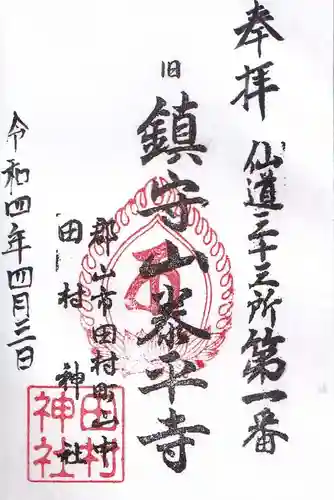 奉拝
仙道三十三所第一番
旧
鎮守山泰平寺
郡山市田村町山中
田村神社
令和四年四月三日
田村
神社